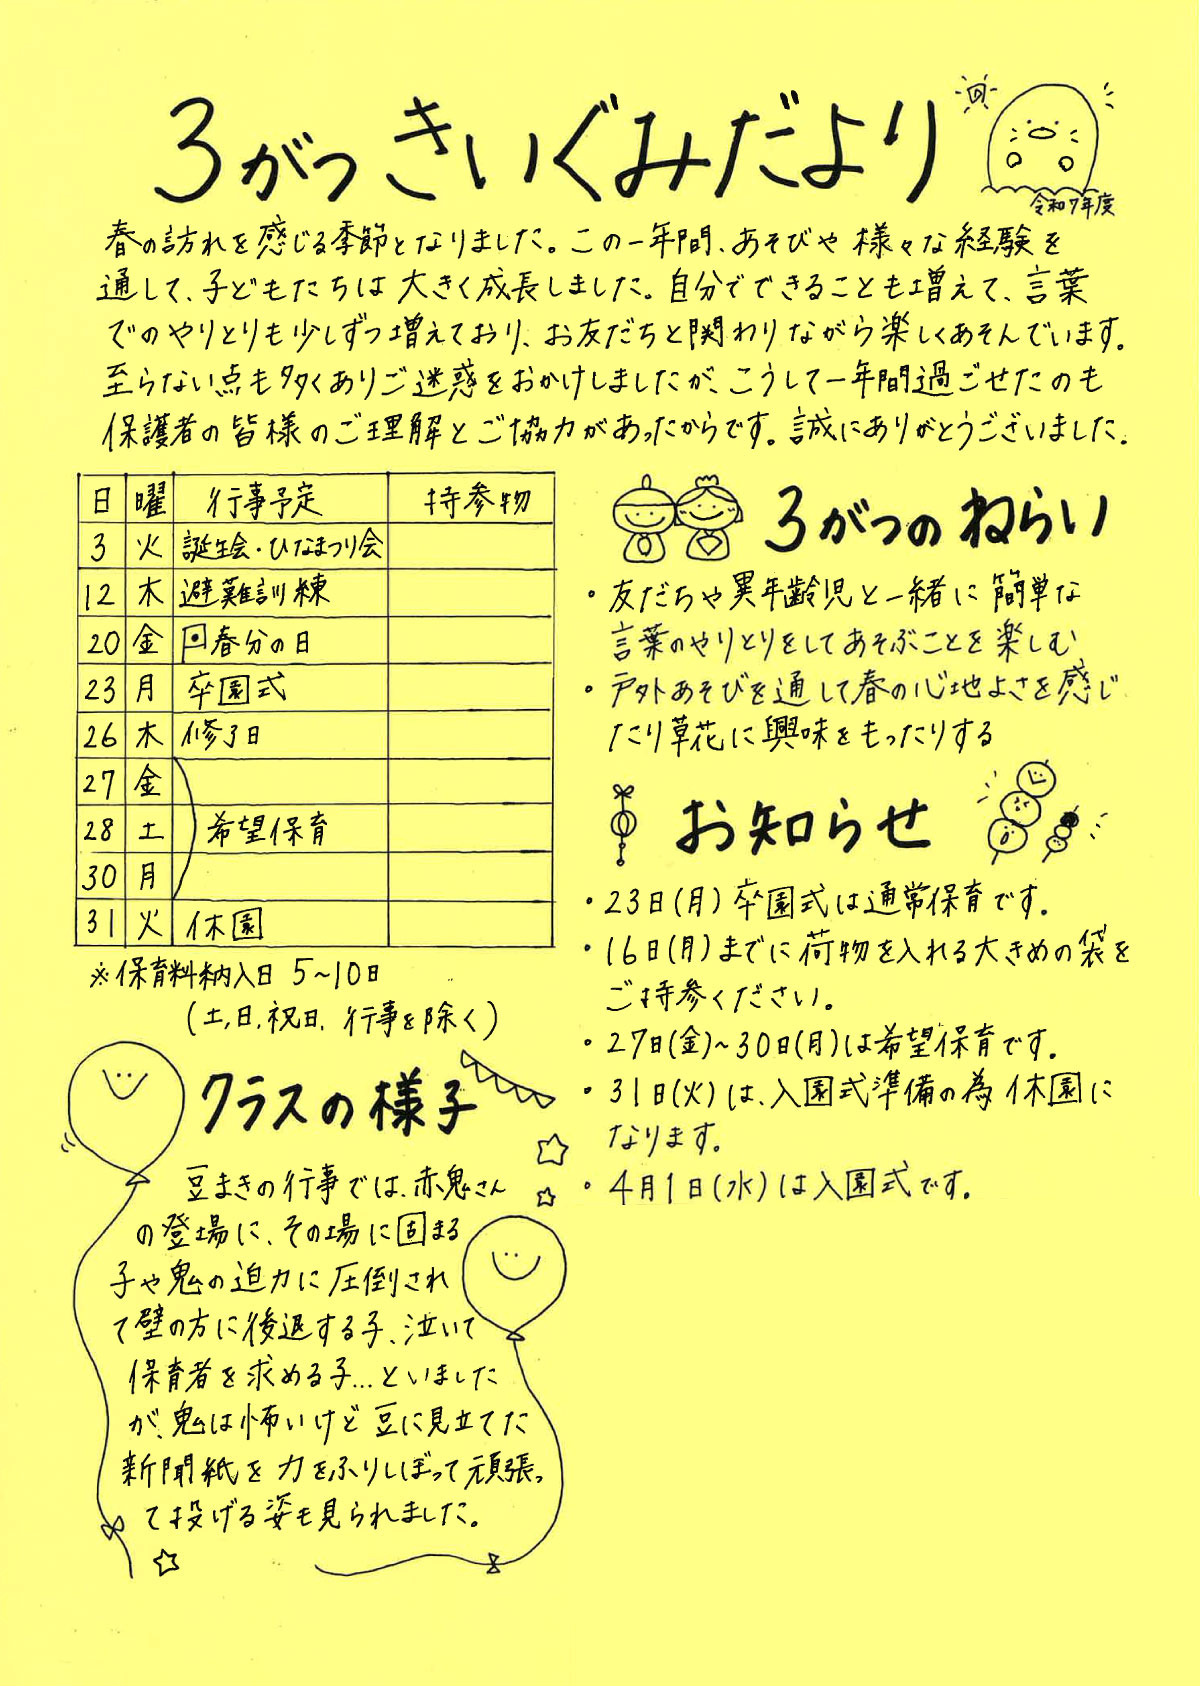 3がつ きいぐみだより
令和7年度
春の訪れを感じる季節となりました。この一年間、あそびや様々な経験を
通して、子どもたちは大きく成長しました。自分でできることも増えて、言葉
でのやりとりも少しずつ増えており、お友だちと関わりながら楽しくあそんでいます。
至らない点も多くありご迷惑をおかけしましたが、こうして一年間過ごせたのも
保護者の皆様のご理解とご協力があったからです。誠にありがとうございました。
日 曜 行事予定 持参物
3 火 誕生会・ひなまつり会
12 木 避難訓練
20 金 春分の日
23 月 卒園式
26 木 修了日
27 金
28 土 希望保育
30 月
31 火 休園
※保育料納入日 5～10日
(土,日,祝日、行事を除く)
3がつのねらい
・友だちや異年齢児と一緒に簡単な
言葉のやりとりをしてあそぶことを楽しむ
・戸外あそびを通して春の心地よさを感じ
たり草花に興味をもったりする
お知らせ
・23日(月)卒園式は通常保育です。
・16日(月)までに荷物を入れる大きめの袋を
ご持参ください。
・27日(金)～30日(月)は希望保育です。
・31日(火)は、入園式準備の為休園に
なります。
・4月1日(水)は入園式です。
クラスの様子
豆まきの行事では、赤鬼さん
の登場に、その場に固まる
子や鬼の迫力に圧倒され
て壁の方に後退する子、泣いて
保育者を求める子…といました
が、鬼は怖いけど豆に見立てた
新聞紙を力をふりしぼって頑張っ
て投げる姿も見られました。